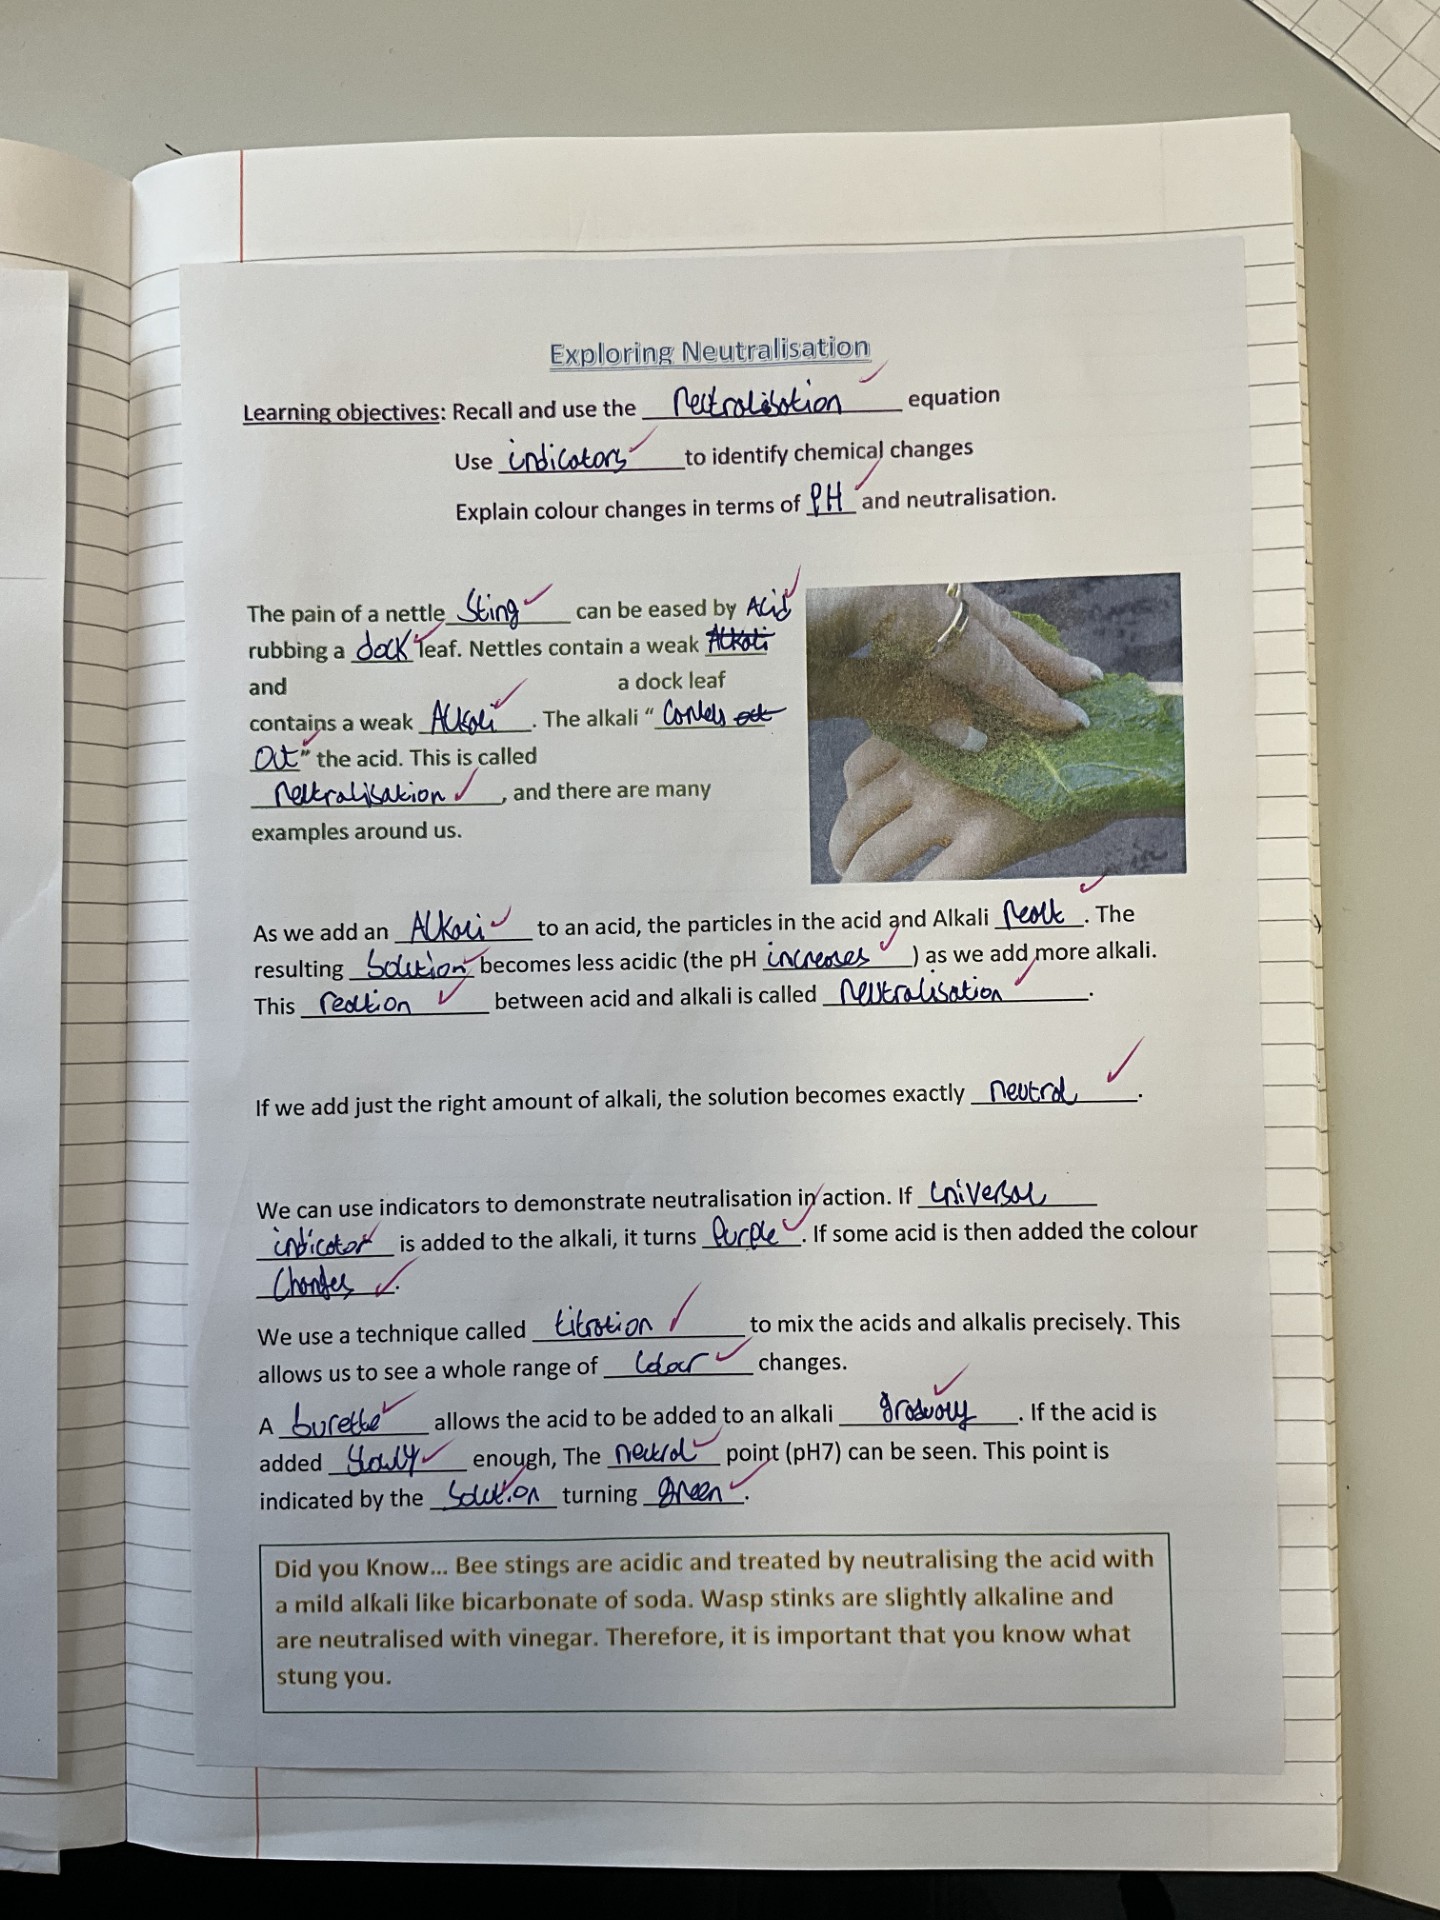 Exploring Neutralisation
Learning objectives: Recall and use the Neutralisation equation
Use indicators to identify chemical changes
Explain colour changes in terms of PH and neutralisation.
The pain of a nettle Sting can be eased by Acid
rubbing a dock leaf. Nettles contain a weak Alkali
and a dock leaf
contains a weak Alkali. The alkali “ Cancels out
Out” the acid. This is called
Neutralisation, and there are many
examples around us.
As we add an Alkali to an acid, the particles in the acid and Alkali React. The
resulting Solution becomes less acidic (the pH increases) as we add more alkali.
This reaction between acid and alkali is called Neutralisation.
If we add just the right amount of alkali, the solution becomes exactly neutral.
We can use indicators to demonstrate neutralisation in action. If Universal
indicator is added to the alkali, it turns Purple. If some acid is then added the colour
Changes.
We use a technique called titration to mix the acids and alkalis precisely. This
allows us to see a whole range of Colour changes.
A burette allows the acid to be added to an alkali gradually. If the acid is
added Slowly enough, The neutral point (pH7) can be seen. This point is
indicated by the Solution turning green.
Did you Know... Bee stings are acidic and treated by neutralising the acid with
a mild alkali like bicarbonate of soda. Wasp stinks are slightly alkaline and
are neutralised with vinegar. Therefore, it is important that you know what
stung you.